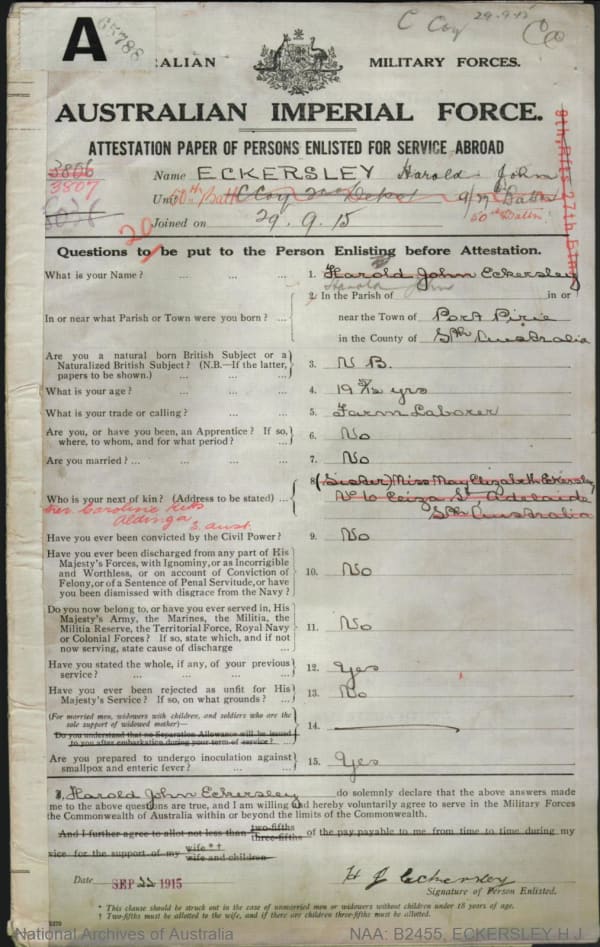 C Coy 29-9-15
65788
A
RALIAN MILITARY FORCES.
AUSTRALIAN IMPERIAL FORCE.
ATTESTATION PAPER OF PERSONS ENLISTED FOR SERVICE ABROAD
3806
3807
Name ECKERSLEY Harold John
Unit 50th Batt C Coy 9/27 Battn
50th Battn
Joined on 29.9.15
20
Questions to be put to the Person Enlisting before Attestation.
What is your Name? ... ... ... 1. Harold John Eckersley
Harold John
2. In the Parish of in or
In or near what Parish or Town were you born? ... near the Town of Port Pirie
in the County of Sth Australia
Are you a natural born British Subject or a
Naturalized British Subject? (N.B.—If the latter,
papers to be shown.) ... ... 3. N B.
What is your age? ... ... ... 4. 19 5/12 yrs
What is your trade or calling? ... ... 5. Farm Laborer
Are you, or have you been, an Apprentice? If so,
where, to whom, and for what period? ... 6. No
Are you married? ... ... ... 7. No
8. (Sister) Miss May Elizabeth Eckersley
Who is your next of kin? (Address to be stated) ... St, Adelaide
Sth Australia
Caroline
Aldinga
S. Aust.
Have you ever been convicted by the Civil Power? 9. No
Have you ever been discharged from any part of His
Majesty's Forces, with Ignominy, or as Incorrigible
and Worthless, or on account of Conviction of
Felony, or of a Sentence of Penal Servitude, or have
you been dismissed with disgrace from the Navy? 10. No
Do you now belong to, or have you ever served in, His
Majesty's Army, the Marines, the Militia, the
Militia Reserve, the Territorial Force, Royal Navy
or Colonial Forces? If so, state which, and if not
now serving, state cause of discharge 11. No
Have you stated the whole, if any, of your previous
service? ... ... ... ... 12. Yes
Have you ever been rejected as unfit for His
Majesty's Service? If so, on what grounds? ... 13. No
(For married men, widowers with children, and soldiers who are the
sole support of widowed mother)—
Do you understand that no Separation Allowance will be issued
to you after embarkation during your term of service? ... 14.
Are you prepared to undergo inoculation against
smallpox and enteric fever? ... ... 15. Yes
I, Harold John Eckersley do solemnly declare that the above answers made
me to the above questions are true, and I am willing and hereby voluntarily agree to serve in the Military Forces
the Commonwealth of Australia within or beyond the limits of the Commonwealth.
And I further agree to allot not less than two-fifths three-fifths of the pay payable to me from time to time during my
vice for the support of my wife * † wife and children
Date SEP 22 1915 H J Eckersley
Signature of Person Enlisted.
* This clause should be struck out in the case of unmarried men or widowers without children under 18 years of age.
† Two-fifths must be allotted to the wife, and if there are children three-fifths must be allotted.
National Archives of Australia NAA: B2455, ECKERSLEY H J